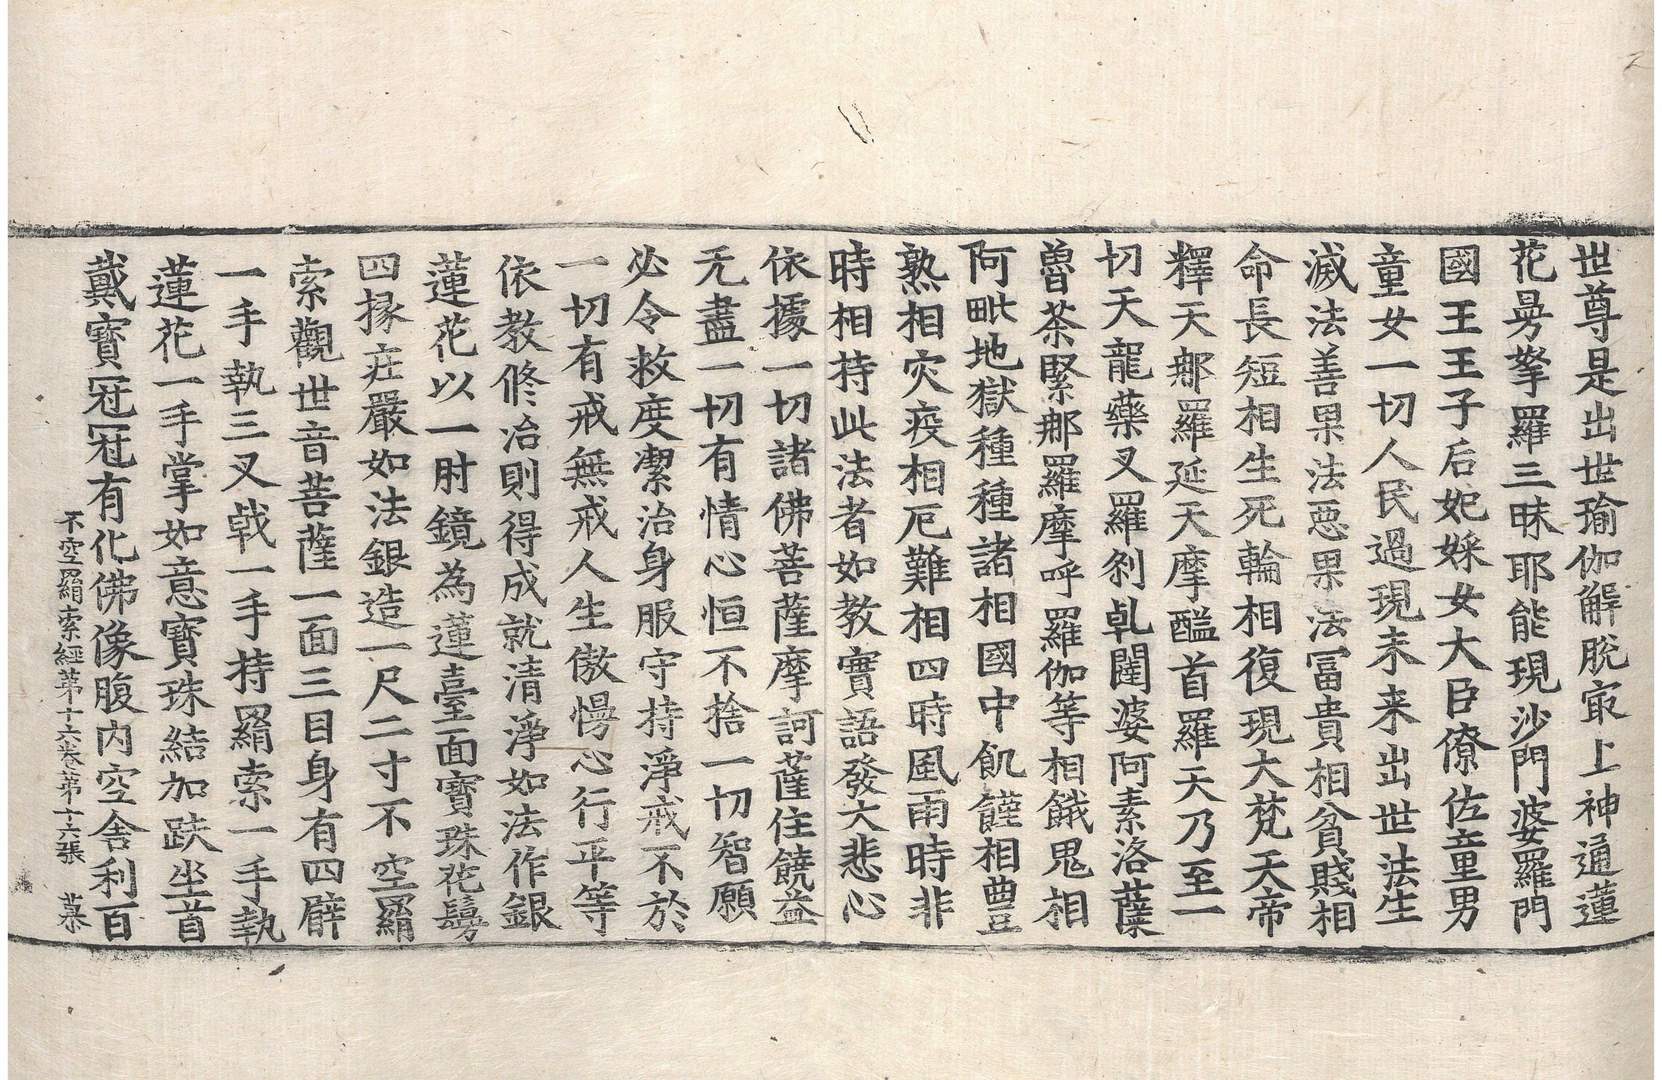 世尊是出世瑜伽解脫冣上神通蓮
花曼拏羅三昧耶能現沙門婆羅門
國王王子后妃婇女大臣僚佐童男
童女一切人民過現未来出世法生
滅法善果法惡果法冨貴相貧賤相
命長短相生死輪相復現大梵天帝
釋天那羅延天摩醯首羅天乃至一
切天龍藥叉羅刹乹闥婆阿素洛蘖
魯茶緊那羅摩呼羅伽等相餓鬼相
阿毗地獄種種諸相國中飢饉相豊
熟相灾疫相厄難相四時風雨時非
時相持此法者如教實語發大悲心
依據一切諸佛菩薩摩訶薩住饒益
无盡一切有情心恒不捨一切智願
必令救度潔治身服守持淨戒不於
一切有戒無戒人生傲慢心行平等
依教修治則得成就清淨如法作銀
蓮花以一肘鏡為蓮臺面寶珠花鬘
四掾庄嚴如法銀造一尺二寸不空羂
索觀世音菩薩一面三目身有四臂
一手執三叉戟一手持羂索一手執
蓮花一手掌如意寶珠結加趺坐首
戴寶冠冠有化佛像腹内空舍利百
不空羂索經苐十六卷苐十六張 慕